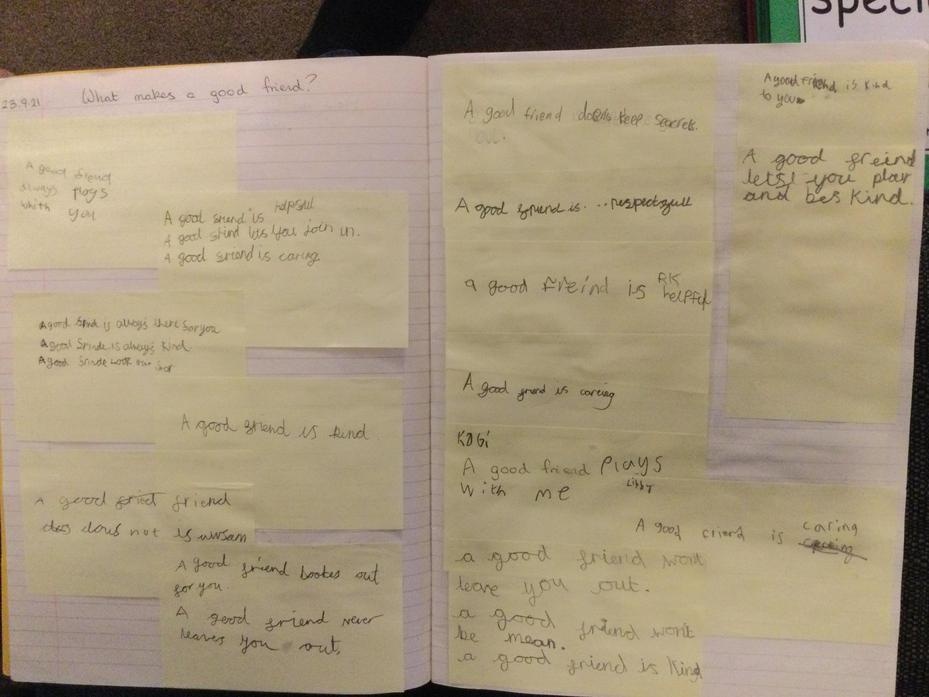 speci
23.9.21
What makes a good friend?
A good friend
always plays
whith you
A good friend is helpful
A good frind lets you join in.
A good friend is caring
A good frind is always there for you
A good frinde is always kind
A good frinde look out for
A good friend is kind.
A good friend
does not is
A good friend bookes out
for you.
A good friend never
leaves you out.
A good friend keep secrets.
A good friend is... respectfull
a good freind is RK
helpful
A good friend is careing
KOGi
A good friend Plays
With me
Libby
A good criend is caring
a good friend wont
leave you out.
a good friend wont
be mean.
a good friend is Kind
A good friend is kind
to you
A good freind
lets you play
and bes Kind.